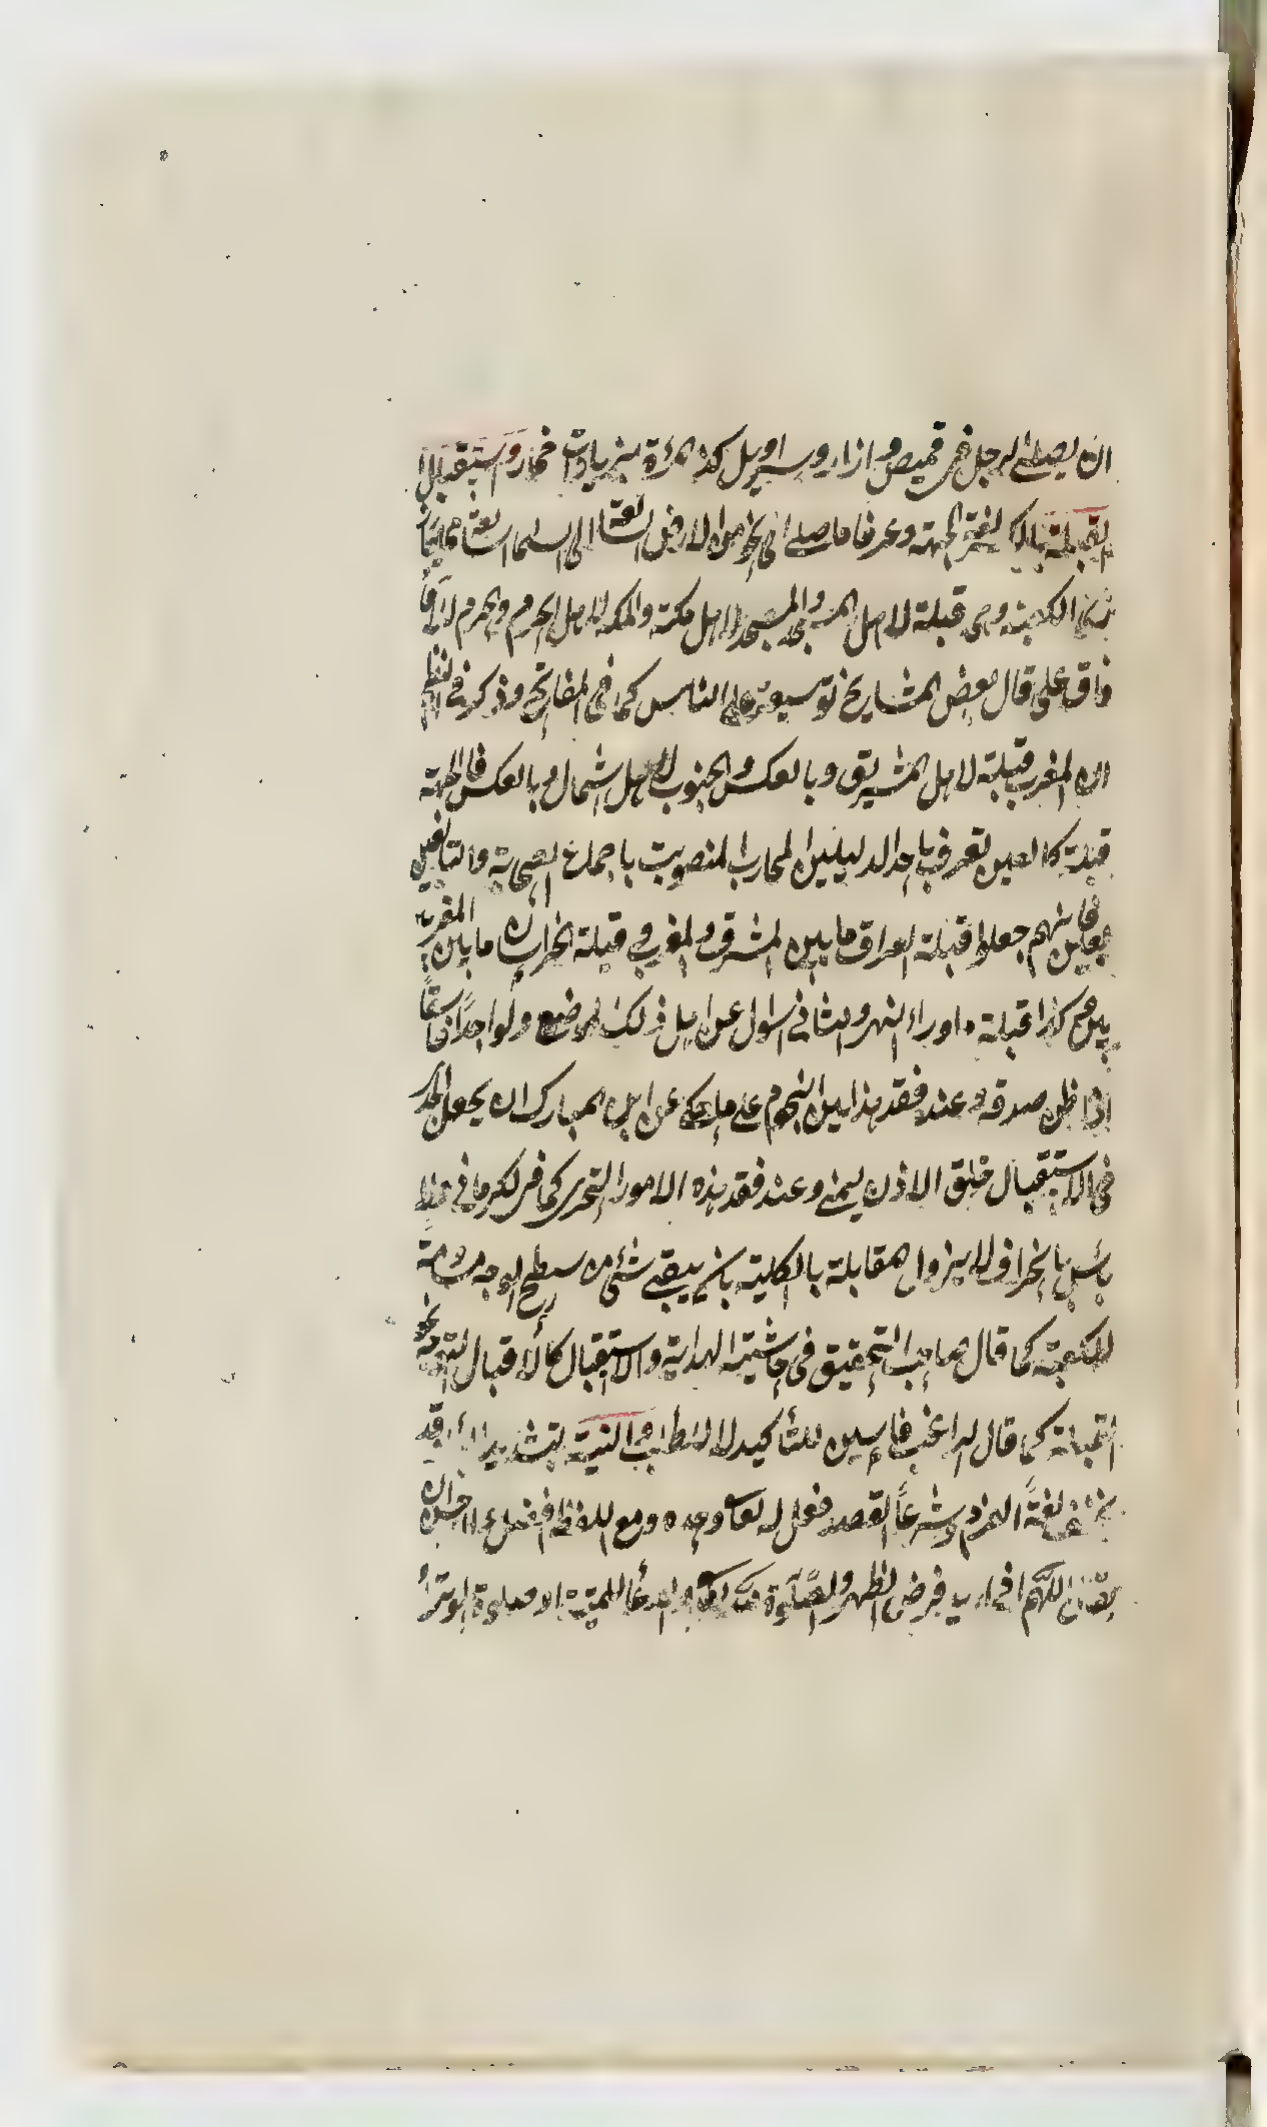 ان يصلى الرجل فى قميص وازار وسراويل كذا المرأة بزيادة خمار واستقبال
القبلة بالكسر لغة الجهة وعرفا ما يصلى الى نحوها من الارض السابعة الى السماء السابعة مما يحاذى
الكعبة وهى قبلة لاهل المسجد والمسجد لاهل مكة والمكة لاهل الحرم والحرم للآفاق
فاقى على قال بعض المشايخ توسعة على الناس كما فى المفاتيح وذكر فى النظم
ان المغرب قبلة لاهل المشرق وبالعكس والجنوب لاهل الشمال وبالعكس فالجهة
قبلة كالعين تعرف باحد الدليلين المحاريب المنصوبة باجماع الصحابة والتابعين
فانهم جعلوا قبلة العراق ما بين المشرق والمغرب وقبلة الخراسان ما بين المغربين
كذا قبلة ما وراء النهر والثانى السؤال عن اهل ذلك الموضع ولو واحدا فاسقا
اذا ظن صدقه وعند فقد هذين النجوم على ما حكى عن ابن المبارك ان يجعل الجدى
فى الاستقبال خلف الاذن اليمنى وعند فقد هذه الامور التحرى كما فى الكرمانى فلا
بأس بانحراف لا يزول المقابلة بالكلية بان يبقى شئ من سطح الوجه مسامتة
للكعبة كما قال صاحب التحقيق فى حاشية الهداية والاستقبال كالاقبال التوجه نحو
القبلة كما قال الراغب فالسين للتأكيد لا للطلب والنية بتشديد الياء وقد
يخفف لغة العزم وشرعا القصد فعل لله تعالى وحده ومع اللفظ افضل والاحسن ان
يقال اللهم انى اريد فرض الظهر والصلوة لله تعالى والدعاء للميت او صلوة الوتر